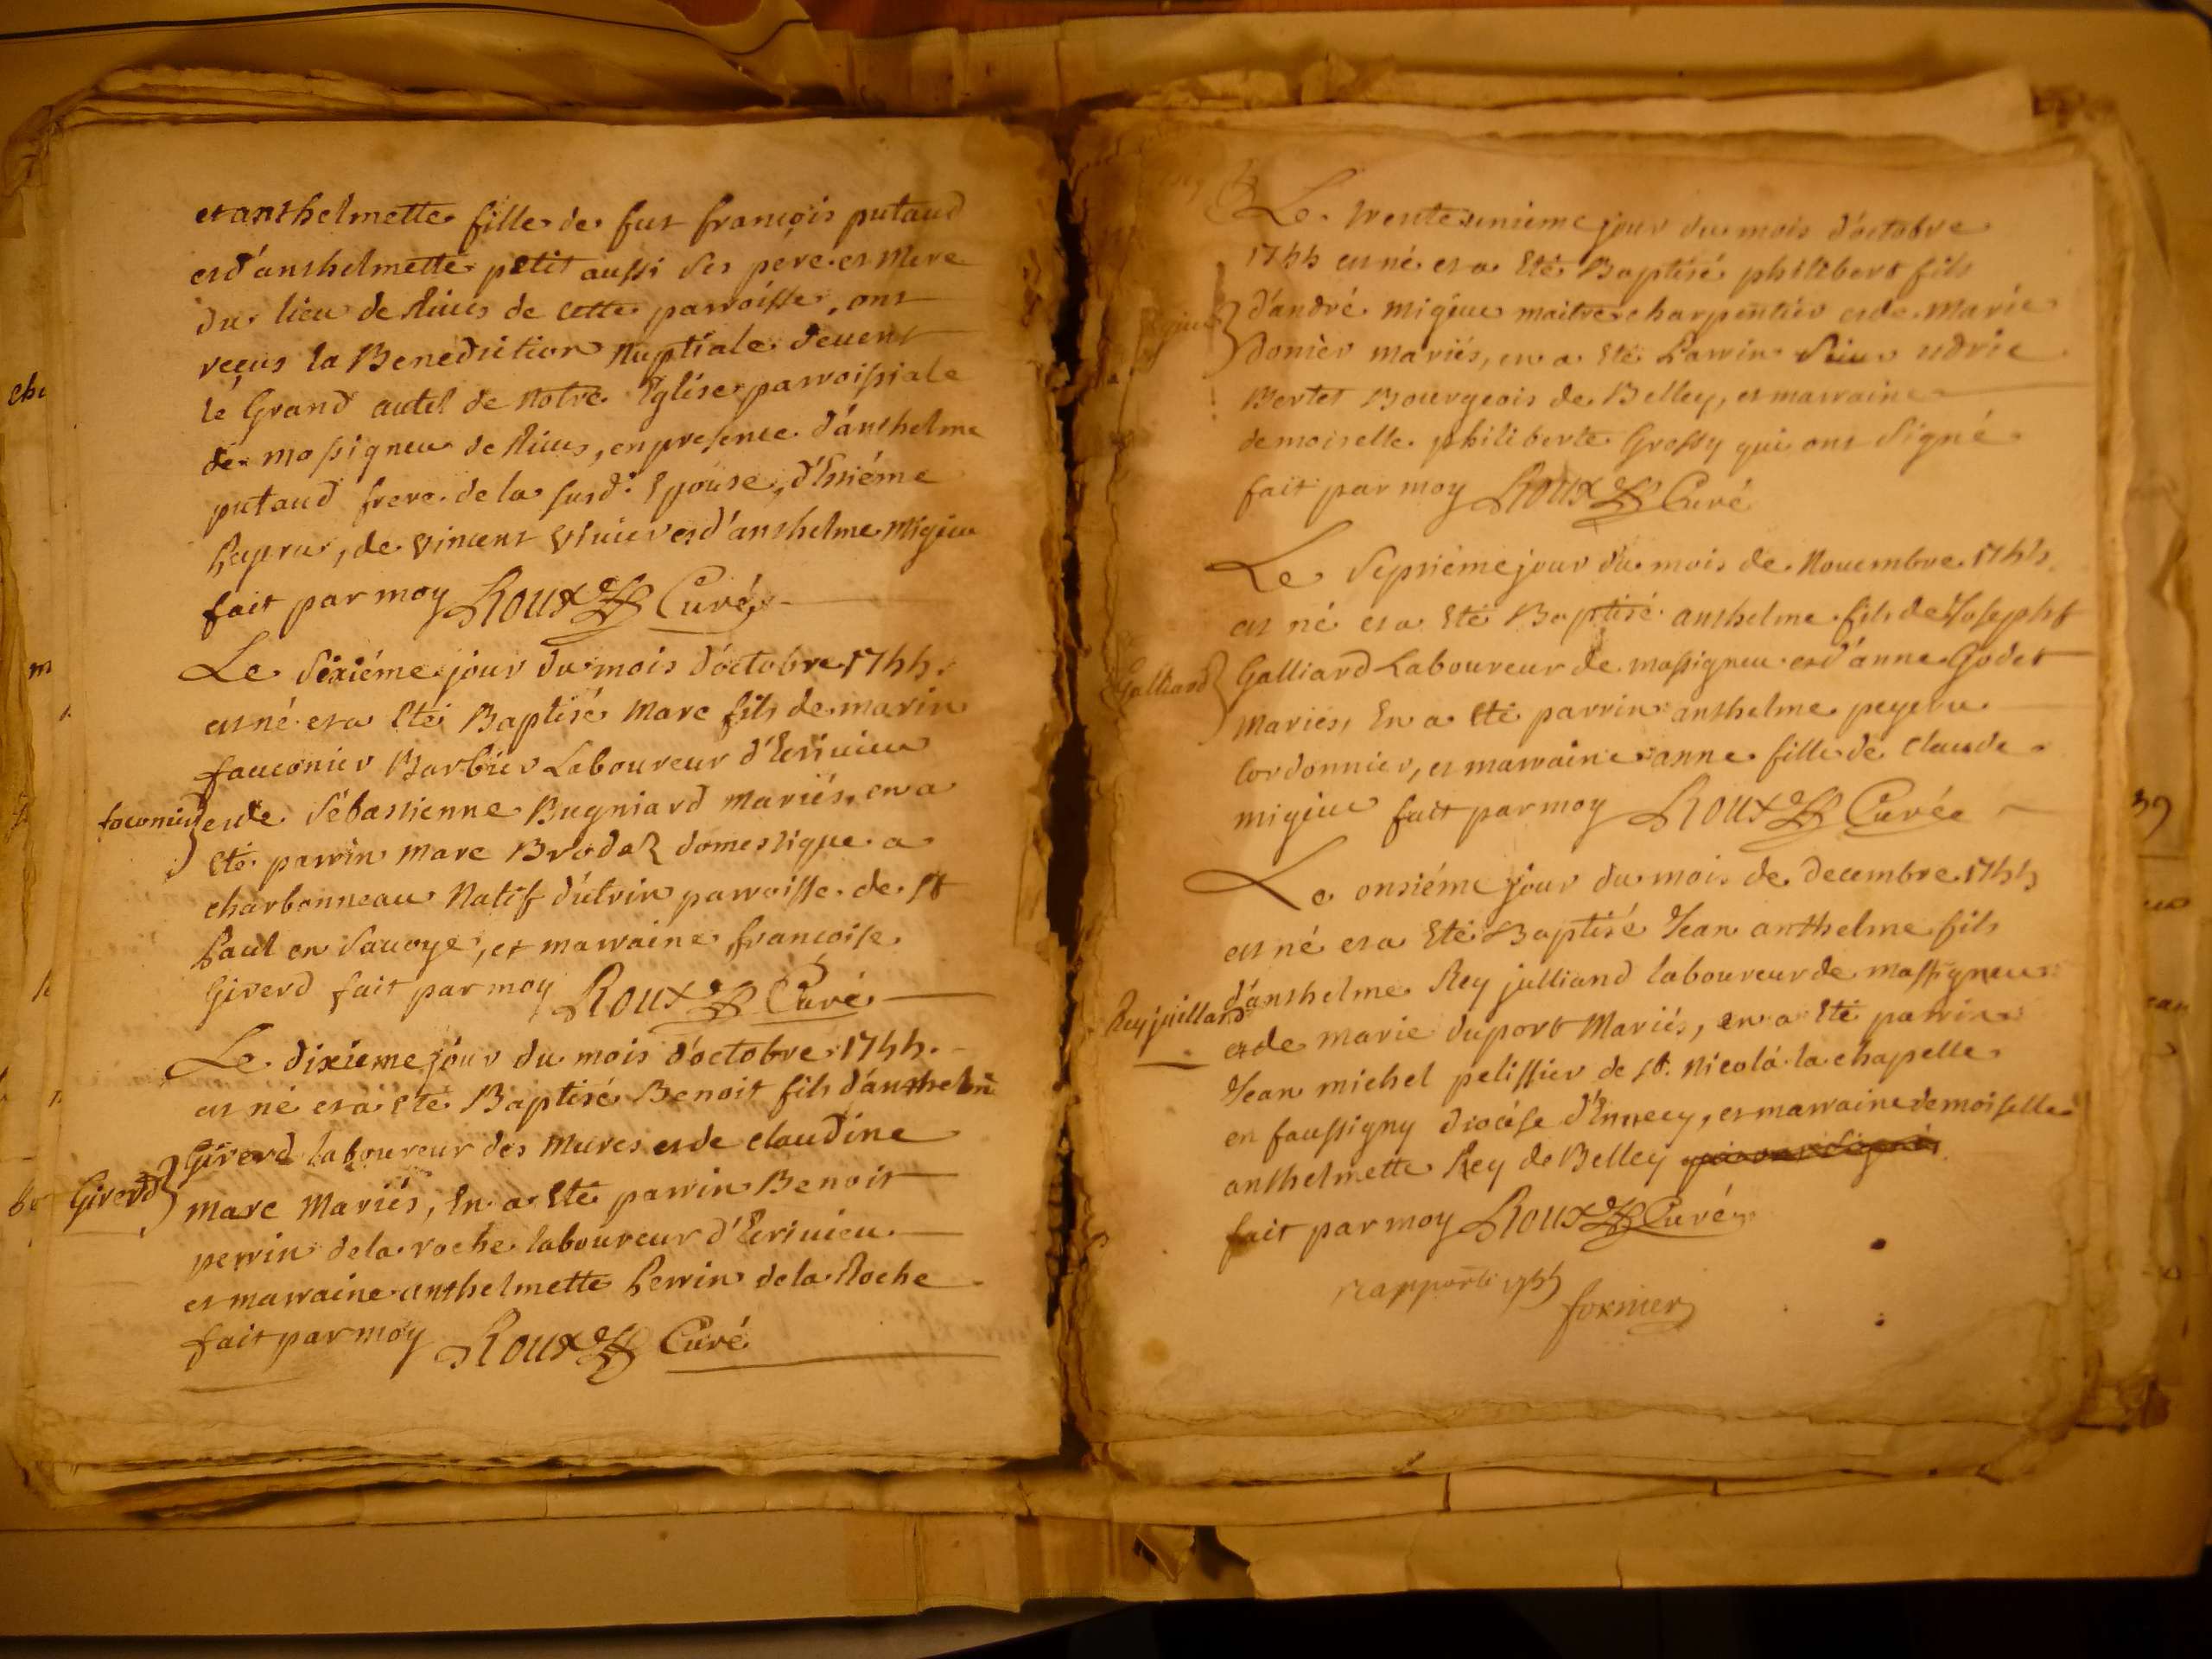 et anthelmette fille de fut francois putaud
et d'anthelmette petit aussi ses pére et Mere
du lieu de Rius de cette parroisse, ont
reçus la Benediction Nuptiale devent
le Grand autel de Notre Eglise parroissiale
de massigneu de Rius, en presence d'anthelme
putaud frere de la susd. Epouse, d'Etiéme
, de vincent et d'anthelme Migieu
fait par moy Roux Curé
Le Sixiéme jour du mois d'octobre 1744.
est né et a Eté Baptisé Marc fils de marin
fauconier Barbier Laboureur d'Ecrivieu
faconier
et de Sébastienne Bugniard Mariés, en a
Eté parrin Marc Brodaz domestique a
charbonneau Natif d'utrin parroisse de St
Paul en Savoye, et marraine francoise
Giverd fait par moy Roux Curé
Le dixieme jour du mois d'octobre 1744.
est né et a Eté Baptisé Benoit fils d'anthelme
Giverd laboureur des Mures et de Claudine
Giverd
Marc Mariés, En a Eté parrin Benoit
perrin de la roche laboureur d'Ecrivieu
et marraine anthelmette Perrin de la Roche
fait par moy Roux Curé
Le trente unieme jour du mois d'octobre
1744 est né et a Eté Baptisé philibert fils
d'andré Migieu maitre charpentier et de Marie
donier mariés, en a Eté Parrin Sieur
Bertet Bourgeois de Belley, et marraine
demoiselle philiberte Grossy qui ont Signé
fait par moy Roux Curé
Le Septiéme jour du mois de Novembre 1744
est né et a Eté Baptisé anthelme fils de Joseph
Galliard
Galliard Laboureur de massigneu et d'anne Godet
Mariés, En a Eté parrin anthelme peyeru
Cordonnier, et marraine anne fille de Claude
migieu fait par moy Roux Curé
Le onsiéme jour du mois de decembre 1744
est né et a Eté Baptisé Jean anthelme fils
d'anthelme Rey julliand laboureur de massigneu
Rey juilland
et de marie duport Mariés, en a Eté parrin
Jean michel pelissier de st. Nicola la chapelle
en faussigny diocése d'Annecy, et marraine demoiselle
anthelmette Rey de Belley
fait par moy Roux Curé
rapporté 1744